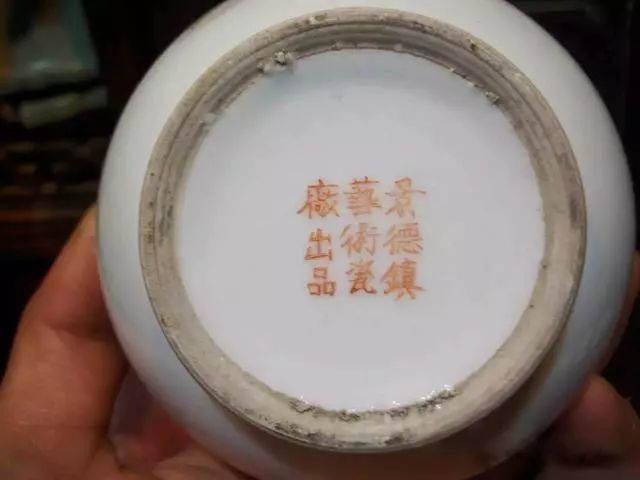 景德鎮
藝術瓷
廠出品